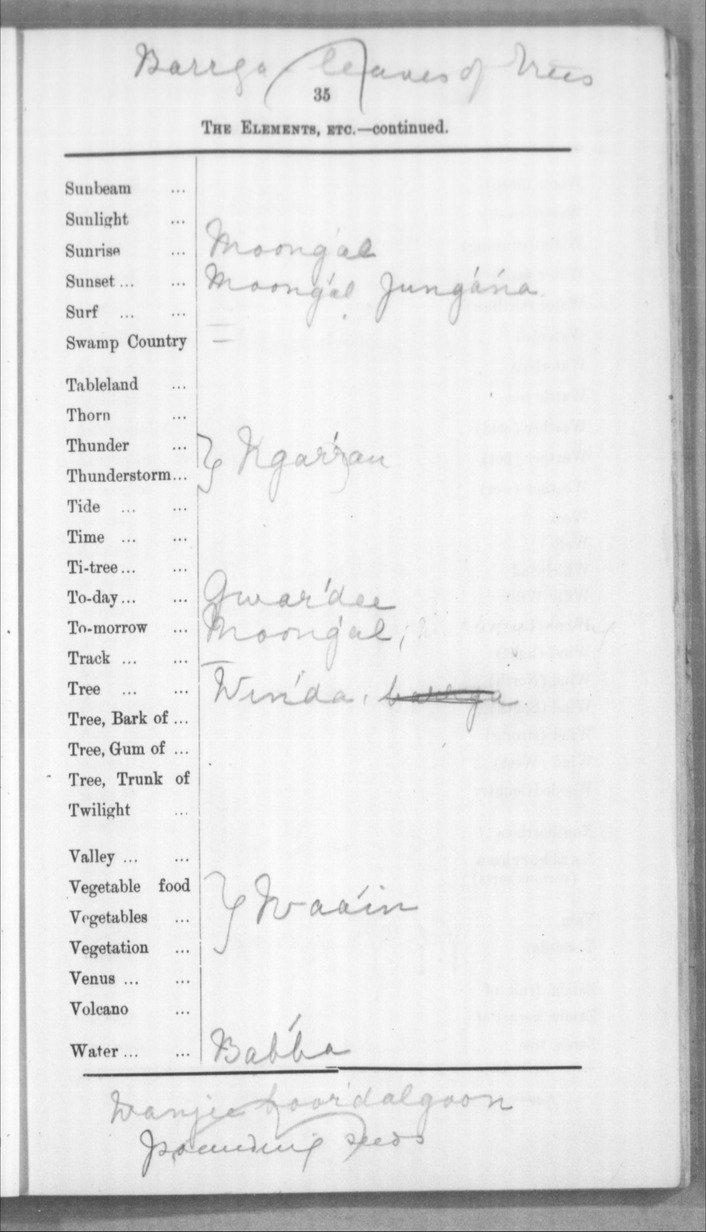 Barrga (leaves of trees
35
THE ELEMENTS, ETC.—continued.
Sunbeam ...
Sunlight ...
Sunrise ... Moongal
Sunset ... ... Moong'al Jung'ána
Surf ... ...
Swamp Country =
Tableland ...
Thorn ...
Thunder ... } Ngar'ran
Thunderstorm...
Tide ... ...
Time ... ...
Ti-tree ... ...
To-day ... ... Gwar'dee
To-morrow ... Moong'al,
Track ... ...
Tree ... ... Win'da, barrga
Tree, Bark of ...
Tree, Gum of ...
Tree, Trunk of
Twilight ...
Valley ... ...
Vegetable food
Vegetables ... }
Vegetation ...
Venus ... ...
Volcano ...
Water ... ... Bab'ba
pounding seeds